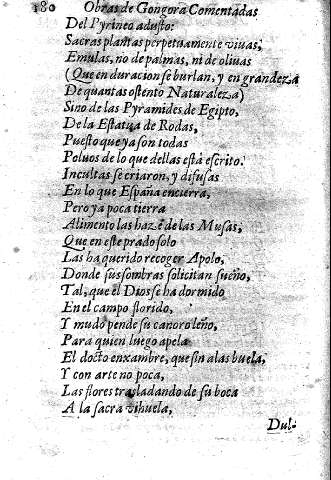 180 Obras de Gongora Comentadas
Del Pyrineo adusto:
Sacras plantas perpetuamente viuas,
Emulas, no de palmas, ni de oliuas
(Que en duracion se burlan, y en grandeza
De quantas ostento Naturaleza)
Sino de las Pyramides de Egipto,
De la Estatua de Rodas,
Puesto que ya son todas
Poluos de lo que dellas está escrito.
Incultas se criaron, y difusas
En lo que España encierra,
Pero ya poca tierra
Alimento las haze de las Musas,
Que en este prado solo
Las ha querido recoger Apolo,
Donde sus sombras solicitan sueño,
Tal, que el Dios se ha dormido
En el campo florido,
Y mudo pende su canoro leño,
Para quien luego apela
El docto enxambre, que sin alas buela,
Y con arte no poca,
Las flores trasladando de su boca
A la sacra vihuela,
Dul-